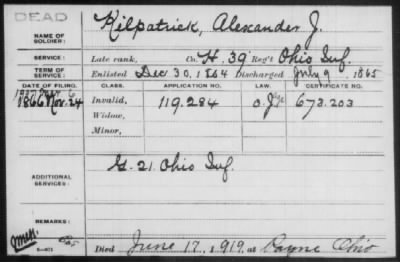 DEAD
NAME OF SOLDIER: Kilpatrick, Alexander J.
SERVICE: Late rank, Co. H. 39 Reg't Ohio Inf.
TERM OF SERVICE: Enlisted Dec 30, 1864 Discharged July 9 1865
DATE OF FILING. CLASS. APPLICATION NO. LAW. CERTIFICATE NO.
1866 Nov. 24 Invalid, 119.284 673.203
Widow,
Minor,
ADDITIONAL SERVICES: G. 21. Ohio Inf.
REMARKS:
3-401
Died June 17, 1919, at Payne Ohio